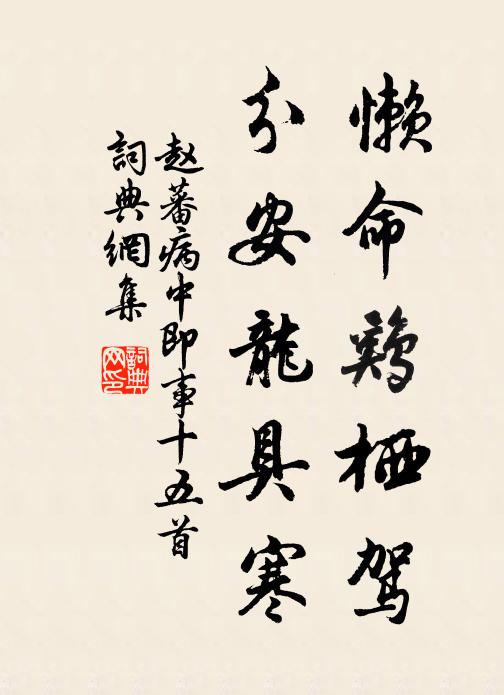 懶命鷄栖駕
分安龍具寒
赵蕃病中即事十五首
詞典網集
詞典网印